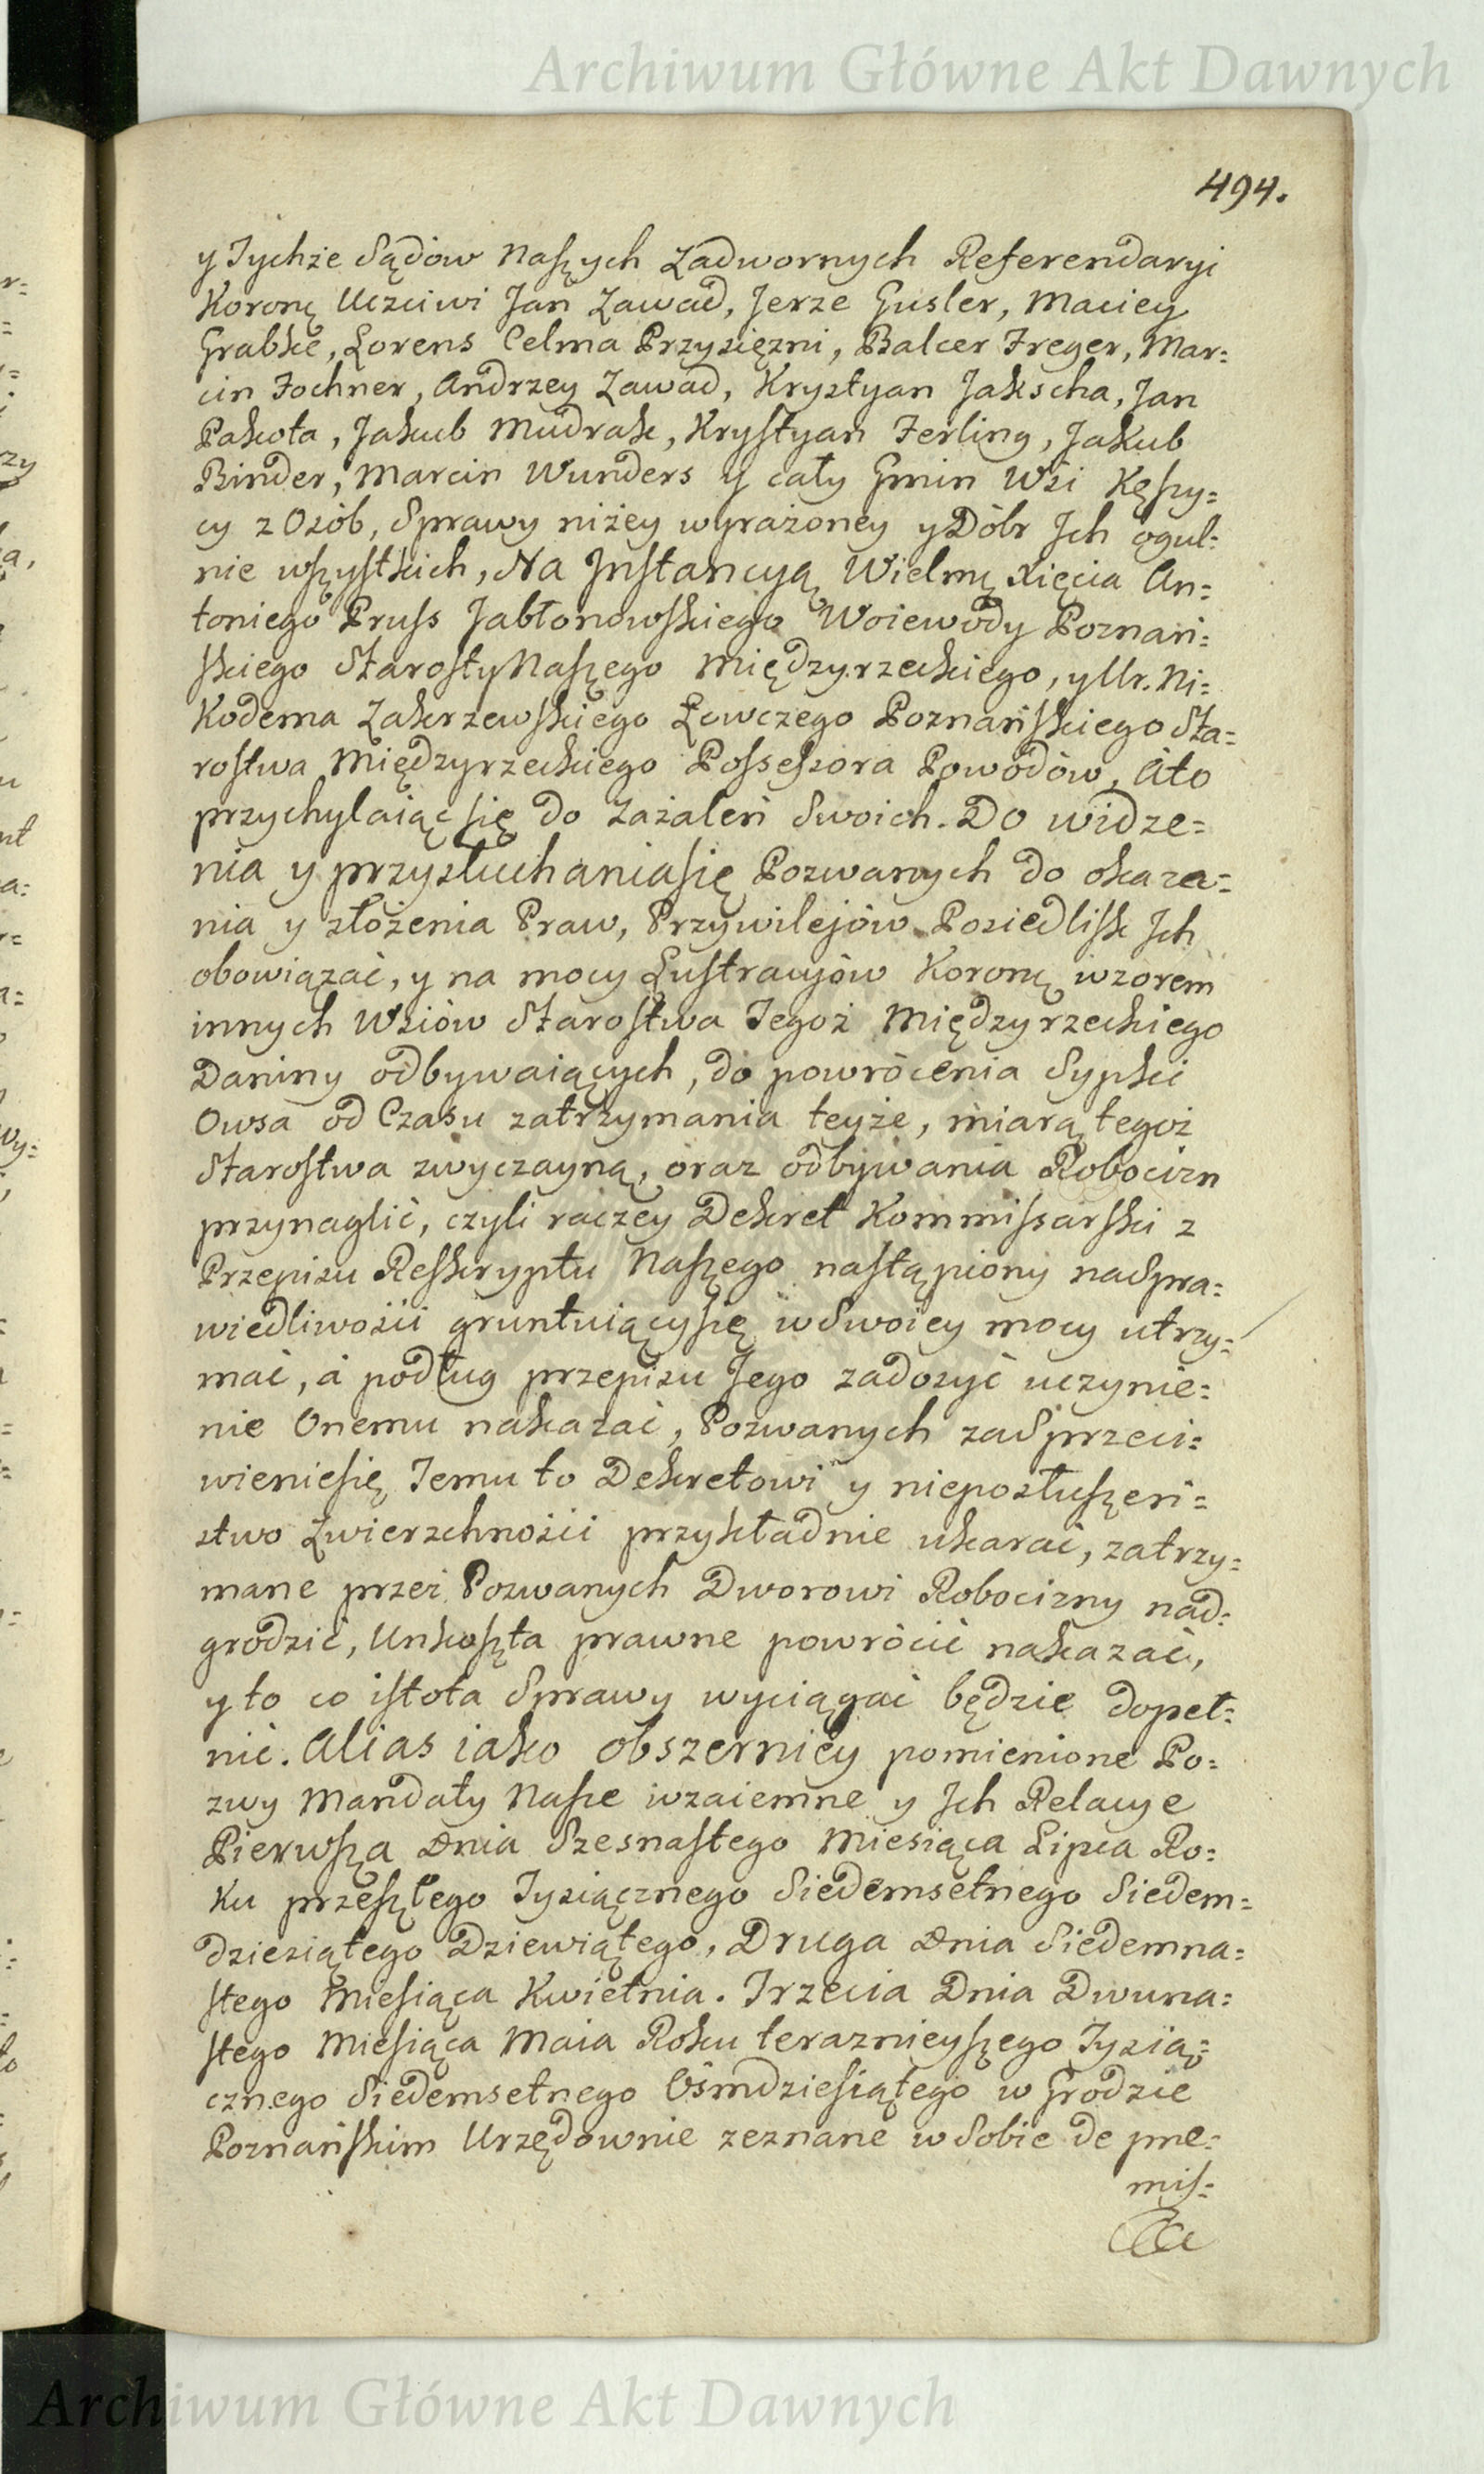 Archiwum Główne Akt Dawnych
494.
y Tychże Sądów Naszych Zadwornych Referendaryi
Koronę Uczciwi Jan Zawad, Jerze Gusler, Maciey
Grabke, Lorens Celma Przysięzni, Balcer Freger, Mar=
cin Fochner, Andrzey Zawad, Krysztyan Jakscha, Jan
Pakoła, Jakub Mudrak, Krystyan Ferling, Jakub
Binder, Marcin Wunders y cały Gmin Wsi Kęszy=
cy z Osób, Sprawy niżey wyrażoney y Dóbr Jch ogul=
nie wszystkich, Na Jnstancyą Wielmę Xięcia An=
toniego Pruss Jabłonowskiego Woiewody Poznań=
skiego Starosty Naszego Międzyrzeckiego, y Ur. Ni=
kodema Zakrzewskiego Łowczego Poznańskiego Sta=
rostwa Międzyrzeckiego Possessora Powodów, Ato
przychylaiąc się do Zażaleń Swoich. Do widze=
nia y przysłuchania się Pozwanych do okaza=
nia y złożenia Praw, Przywilejów Posiedlisk Jch
obowiązać, y na mocy Lustracyjów Koronę wzorem
innych Wsiów Starostwa Tegoż Międzyrzeckiego
Daniny odbywaiących, do powrócenia Sypki
Owsa od Czasu zatrzymania teyże, miarą tegoż
Starostwa zwyczayną, oraz odbywania Robocizn
przynaglić, czyli raczey Dekret Kommissarski z
Przepisu Reskryptu Naszego nastąpiony na Spra=
wiedliwości gruntuiący się w Swoiey mocy utrzy=
mać, a podług przepisu Jego zadosyć uczynie=
nie Onemu nakazać, Pozwanych za Sprzeci=
wienie się Temu to Dekretowi y nieposłuszeń=
stwo Zwierzchności przykładnie ukarać, zatrzy=
mane przez Pozwanych Dworowi Robocizny nad=
grodzić, Unkoszta prawne powrócić nakazać,
y to co istota Sprawy wyciągać będzie dopeł=
nić. Alias iako obszerniey pomienione Po=
zwy Mandaty Nasze wzaiemne y Jch Relacye
Pierwsza Dnia Szesnastego Miesiąca Lipca Ro=
ku przeszłego Tysiącznego Siedemsetnego Siedem=
dziesiątego Dziewiątego, Druga Dnia Siedemna=
stego Miesiąca Kwietnia. Trzecia Dnia Dwuna=
stego Miesiąca Maia Roku teraznieyszego Tysią=
cznego Siedemsetnego Ośmdziesiątego w Grodzie
Poznańskim Urzędownie zeznane w Sobie de pme=
mis=
Archiwum Główne Akt Dawnych